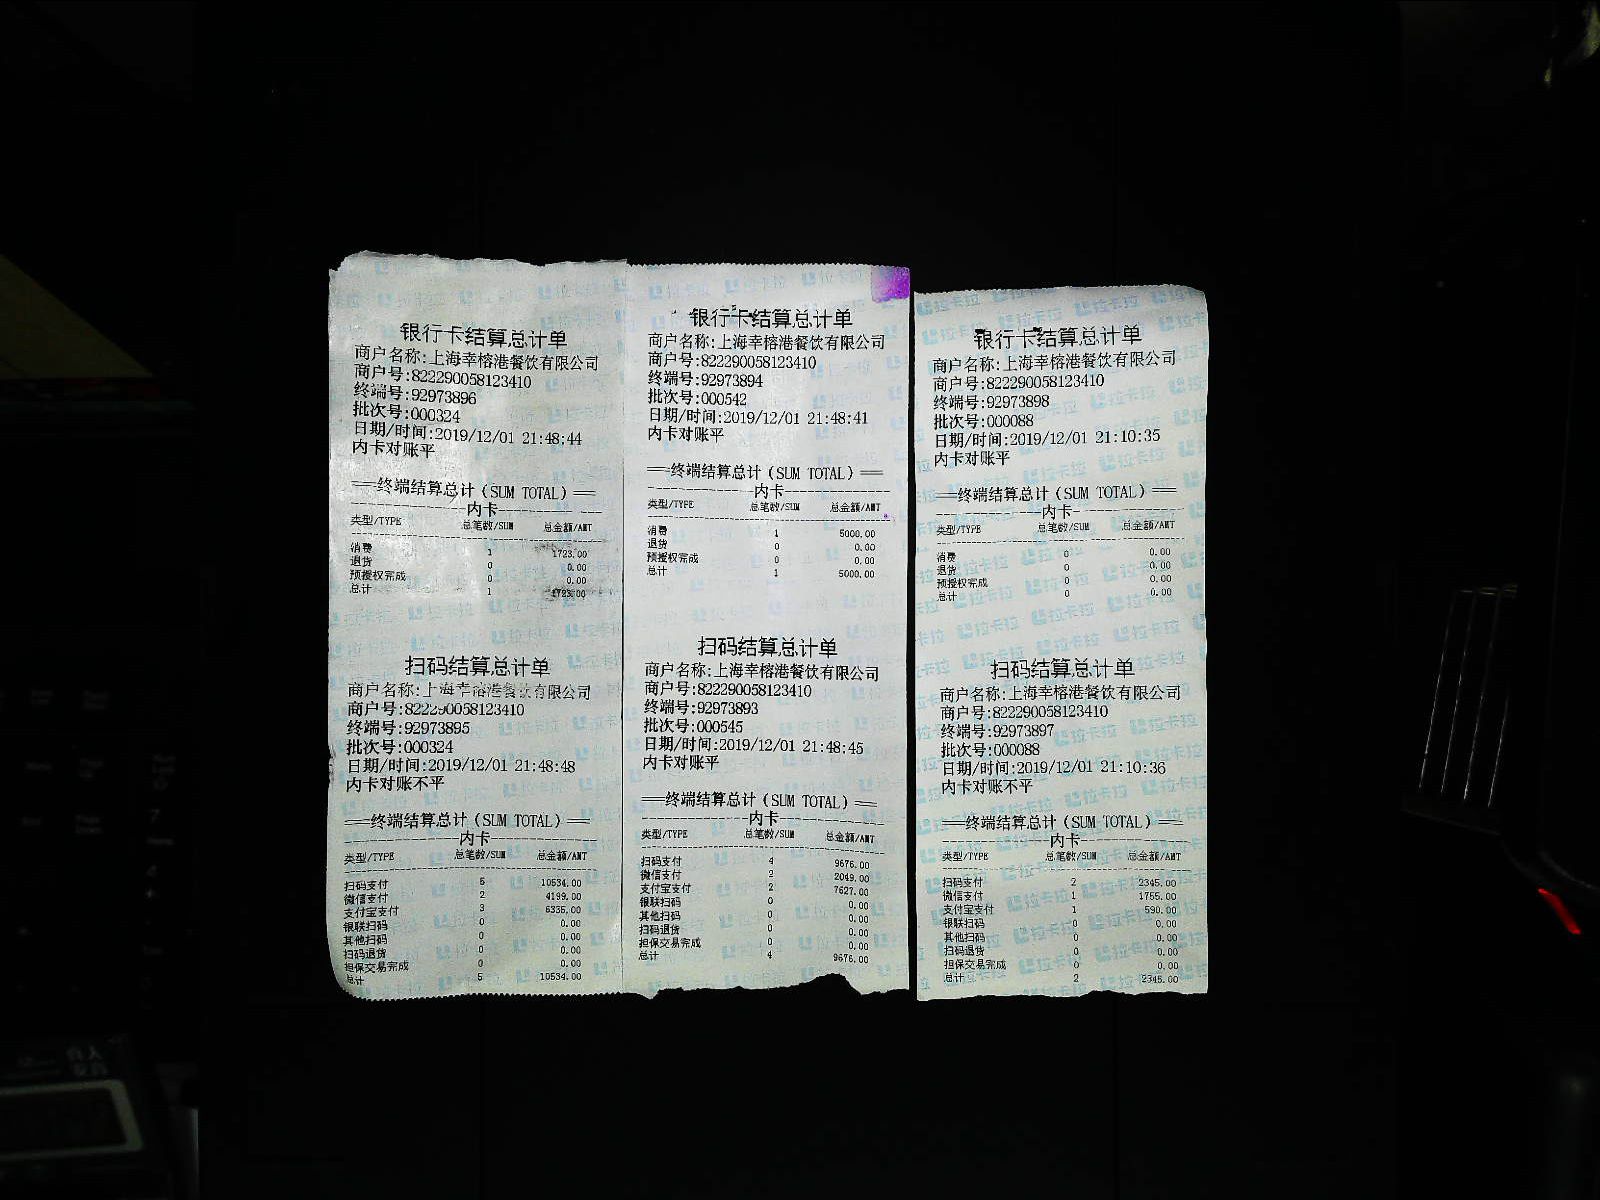 银行卡结算总计单
商户名称:上海幸榕港餐饮有限公司
商户号:822290058123410
终端号:92973896
批次号:000324
日期/时间:2019/12/01 21:48:44
内卡对账平
==终端结算总计(SUM TOTAL)==
内卡
类型/TYPE 总笔数/SUM 总金额/AMT
消费 1 1723.00
退货 0 0.00
预授权完成 0 0.00
总计 1 1723.00
扫码结算总计单
商户名称:上海幸榕港餐饮有限公司
商户号:822290058123410
终端号:92973895
批次号:000324
日期/时间:2019/12/01 21:48:48
内卡对账不平
==终端结算总计(SUM TOTAL)==
内卡
类型/TYPE 总笔数/SUM 总金额/AMT
扫码支付 5 10534.00
微信支付 2 4199.00
支付宝支付 3 6335.00
银联扫码 0 0.00
其他扫码 0 0.00
扫码退货 0 0.00
担保交易完成 0 0.00
总计 5 10534.00
银行卡结算总计单
商户名称:上海幸榕港餐饮有限公司
商户号:822290058123410
终端号:92973894
批次号:000542
日期/时间:2019/12/01 21:48:41
内卡对账平
==终端结算总计(SUM TOTAL)==
内卡
类型/TYPE 总笔数/SUM 总金额/AMT
消费 1 5000.00
退货 0 0.00
预授权完成 0 0.00
总计 1 5000.00
扫码结算总计单
商户名称:上海幸榕港餐饮有限公司
商户号:822290058123410
终端号:92973893
批次号:000545
日期/时间:2019/12/01 21:48:45
内卡对账平
==终端结算总计(SUM TOTAL)==
内卡
类型/TYPE 总笔数/SUM 总金额/AMT
扫码支付 4 9676.00
微信支付 2 2049.00
支付宝支付 2 7627.00
银联扫码 0 0.00
其他扫码 0 0.00
扫码退货 0 0.00
担保交易完成 0 0.00
总计 4 9676.00
银行卡结算总计单
商户名称:上海幸榕港餐饮有限公司
商户号:822290058123410
终端号:92973898
批次号:000088
日期/时间:2019/12/01 21:10:35
内卡对账平
==终端结算总计(SUM TOTAL)==
内卡
类型/TYPE 总笔数/SUM 总金额/AMT
消费 0 0.00
退货 0 0.00
预授权完成 0 0.00
总计 0 0.00
扫码结算总计单
商户名称:上海幸榕港餐饮有限公司
商户号:822290058123410
终端号:92973897
批次号:000088
日期/时间:2019/12/01 21:10:36
内卡对账不平
==终端结算总计(SUM TOTAL)==
内卡
类型/TYPE 总笔数/SUM 总金额/AMT
扫码支付 2 2345.00
微信支付 1 1755.00
支付宝支付 1 590.00
银联扫码 0 0.00
其他扫码 0 0.00
扫码退货 0 0.00
担保交易完成 0 0.00
总计 2 2345.00